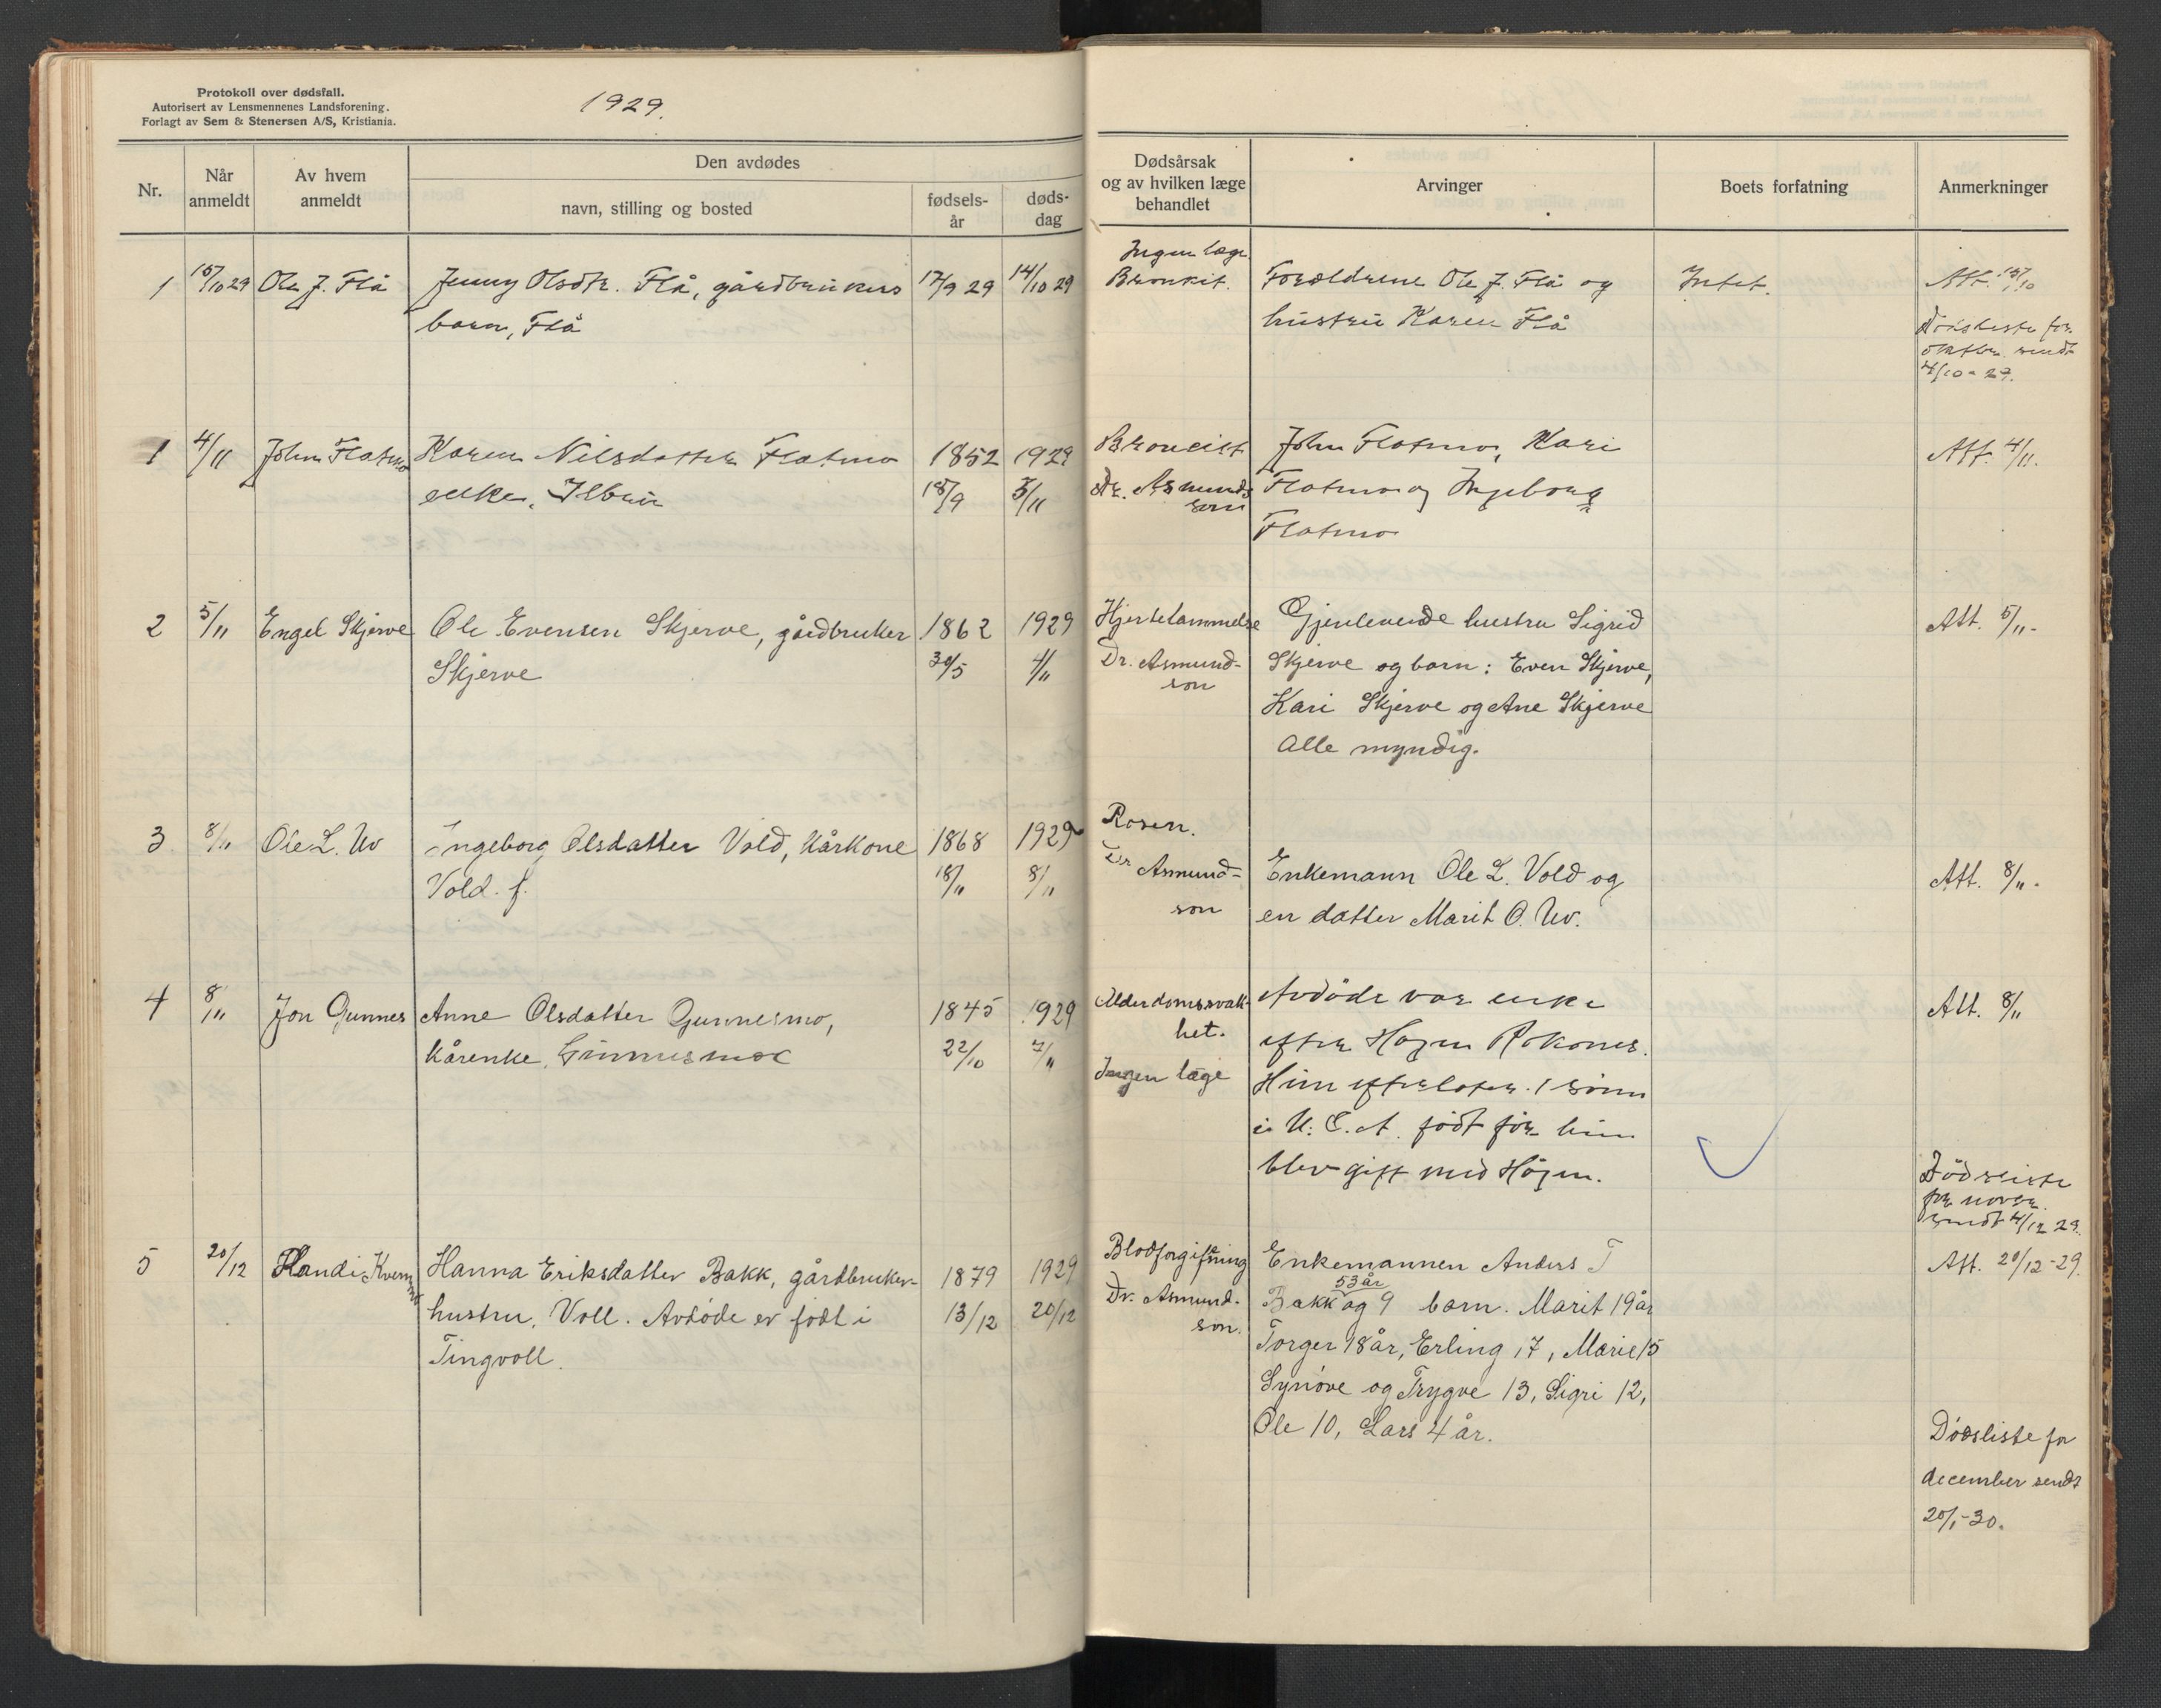 Protokoll over dødsfall.
Autorisert av Lensmennenes Landsforening.
Forlagt av Sem & Stenersen A/S, Kristiania.
1929.
Nr.
Når anmeldt
Av hvem anmeldt
Den avdødes
navn, stilling og bosted
fødsels-år
døds-dag
Dødsårsak og av hvilken læge behandlet
Arvinger
Boets forfatning
Anmerkninger
1 15/10 29 Ole J. Flå Jenny Olsdtr. Flå, gårdbrukers 17/9 29 14/10 29
barn, Flå
Ingen læge
Bronkit.
Forældrene Ole J. Flå og
hustru Karen Flå
Intet.
Att. 15/10
Dödsliste for
oktbr. sendt
4/10-29.
1 4/11 John Flatmo Karen Nilsdatter Flatmo 1852 1929
enke, Ilbru 18/9 3/11
Broncist
Dr. Asmunds
son
John Flatmo, Kari
Flatmo og Ingeborg
Flatmo
Att. 4/11.
2 5/11 Engel Skjerve Ole Evensen Skjerve, gårdbruker 1862 1929
Skjerve 30/5 4/11
Hjertelammelse
Dr. Asmund-
son
Gjenlevende hustru Sigrid
Skjerve og barn: Even Skjerve,
Kari Skjerve og Ane Skjerve
Alle myndig.
Att. 5/11-
3 8/11 Ole L. Uv Ingeborg Olsdatter Vold, Kårkone 1868 1929
Vold. f. 18/11 8/11
Rosen.
Dr Asmund-
son
Enkemann Ole L. Vold og
en datter Marit O. Uv.
Att. 8/11.
4 8/11 Jon Gunnes Anne Olsdatter Gunnesmo, 1845 1929
Kårenke, Gunnesmoe 22/10 7/11
Alderdomssvak-
het.
Ingen læge
Avdöde var enke
efter Hagen Rokones.
Hun efterlater 1 sönn
i U.S.A. födt för hun
blev gift med Högen.
Att. 8/11
Dödsliste
for novbr.
sendt 4/12 29.
5 20/12 Randi Kvernmo Hanna Eriksdatter Bakk, gårdbruker- 1879 1929
hustru, Voll. Avdøde er født i 13/12 20/12
Tingvoll.
Blodforgiftning
Dr. Asmund-
son.
Enkemannen Anders T
53 år
Bakk og 9 barn. Marit 19 år
Torger 18 år, Erling 17, Marie 15
Synøve og Trygve 13, Sigri 12,
Ole 10, Lars 4 år.
Att. 20/12-29.
Dødsliste for
december sendt
20/1-30.